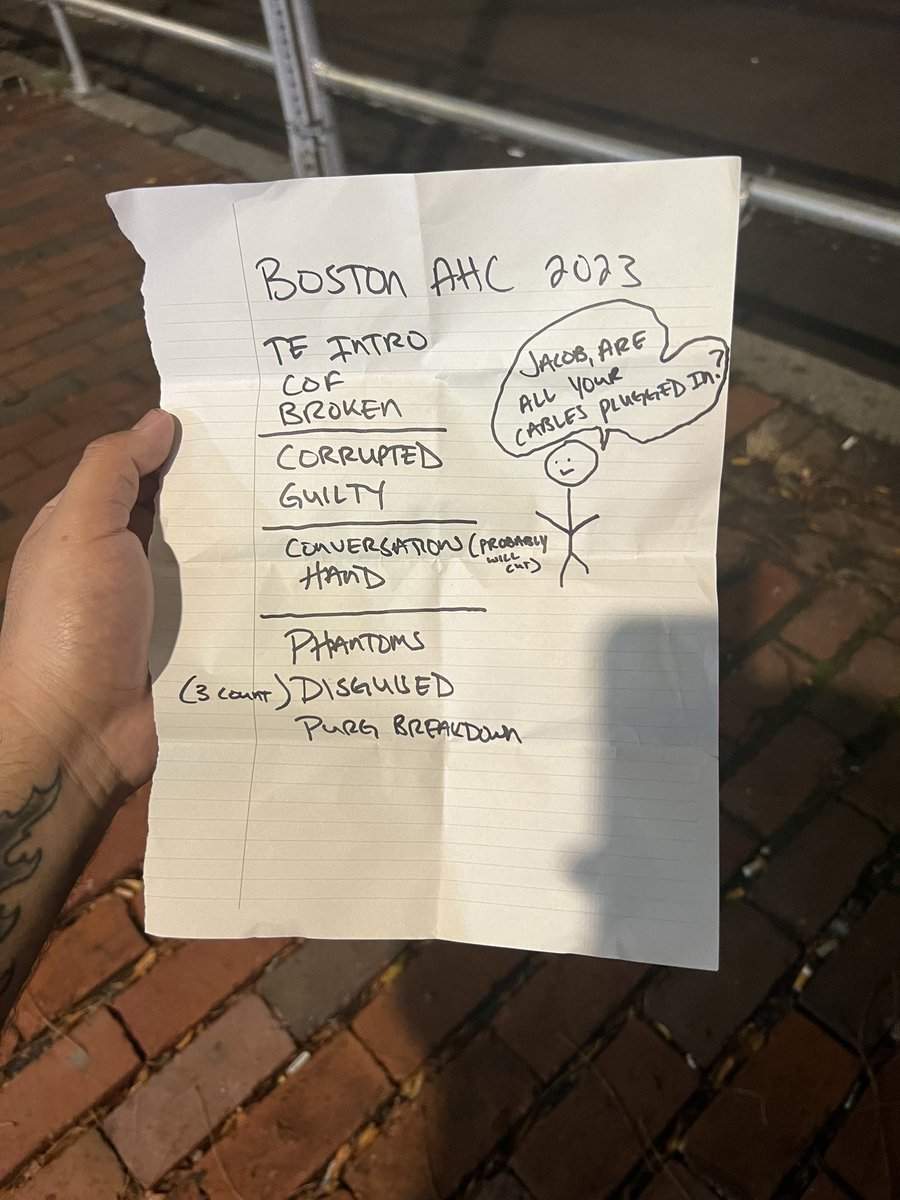 BOSTON AHC 2023
TE INTRO
COF
BROKEN
CORRUPTED
GUILTY
CONVERSATION (PROBABLY
WILL
CUT)
HAND
PHANTOMS
(3 COUNT) DISGUISED
PURG BREAKDOWN
JACOB, ARE
ALL YOUR
CABLES PLUGGED IN?